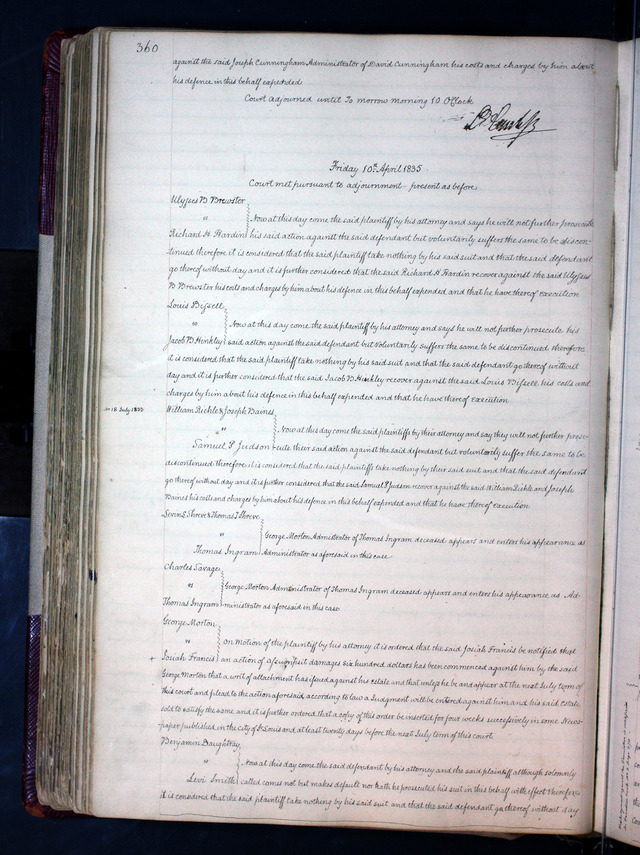 360
against the said Joseph Cunningham Administrator of David Cunningham his costs and charges by him about
his defence in this behalf expended
Court adjourned until To morrow morning 10 O'Clock
Friday 10th April 1835
Court met pursuant to adjournment present as before
Ulysses B Brewster
"
Now at this day come the said plaintiff by his attorney and says he will not further prosecute
Richard H Hardin his said action against the said defendant but voluntarily suffers the same to be discon-
tinued therefore it is considered that the said plaintiff take nothing by his said suit and that the said defendant
go thereof without day and it is further considered that the said Richard H Hardin recover against the said Ulysses
B Brewster his costs and charges by him about his defence in this behalf expended and that he have thereof execution
Louis Bissell
vs
Now at this day come the said plaintiff by his attorney and says he will not further prosecute his
Jacob B Hinkley said action against the said defendant but voluntarily suffers the same to be discontinued therefore
it is considered that the said plaintiff take nothing by his said suit and that the said defendant go thereof without
day and it is further considered that the said Jacob B Hinkley recover against the said Louis Bissell his costs and
charges by him about his defence in this behalf expended and that he have thereof execution
18 July 1835
William Riehle & Joseph Baines
"
Now at this day come the said plaintiffs by their attorney and say they will not further prose-
Samuel P Judson cute their said action against the said defendant but voluntarily suffer the same to be
discontinued therefore it is considered that the said plaintiffs take nothing by their said suit and that the said defendant
go thereof without day and it is further considered that the said Samuel P Judson recover against the said William Riehle and Joseph
Baines his costs and charges by him about his defence in this behalf expended and that he have thereof execution
Shreve & Thomas T Shreve
"
George Morton Administrator of Thomas Ingram deceased appears and enters his appearance as
Thomas Ingram Administrator as aforesaid in this case
Charles Savage
vs
George Morton Administrator of Thomas Ingram deceased appears and enters his appearance as Ad-
Thomas Ingram ministrator as aforesaid in this case
George Morton
"
On motion of the plaintiff by his attorney it is ordered that the said Josiah Francis be notified that
+ Josiah Francis an action of assumpsit damages six hundred dollars has been commenced against him by the said
George Morton that a writ of attachment has issued against his estate and that unless he be and appear at the next July term of
this court and plead to the action aforesaid according to law a Judgment will be entered against him and his said estate
sold to satisfy the same and it is further ordered that a copy of this order be inserted for four weeks successively in some News-
paper published in the city of St Louis and at least twenty days before the next July term of this court
Benjamin Daughtray
"
Now at this day come the said defendant by his attorney and the said plaintiff although solemnly
Levi Smith called comes not but makes default nor hath he prosecuted his suit in this behalf with effect Therefore
it is considered that the said plaintiff take nothing by his said suit and that the said defendant go thereof without day